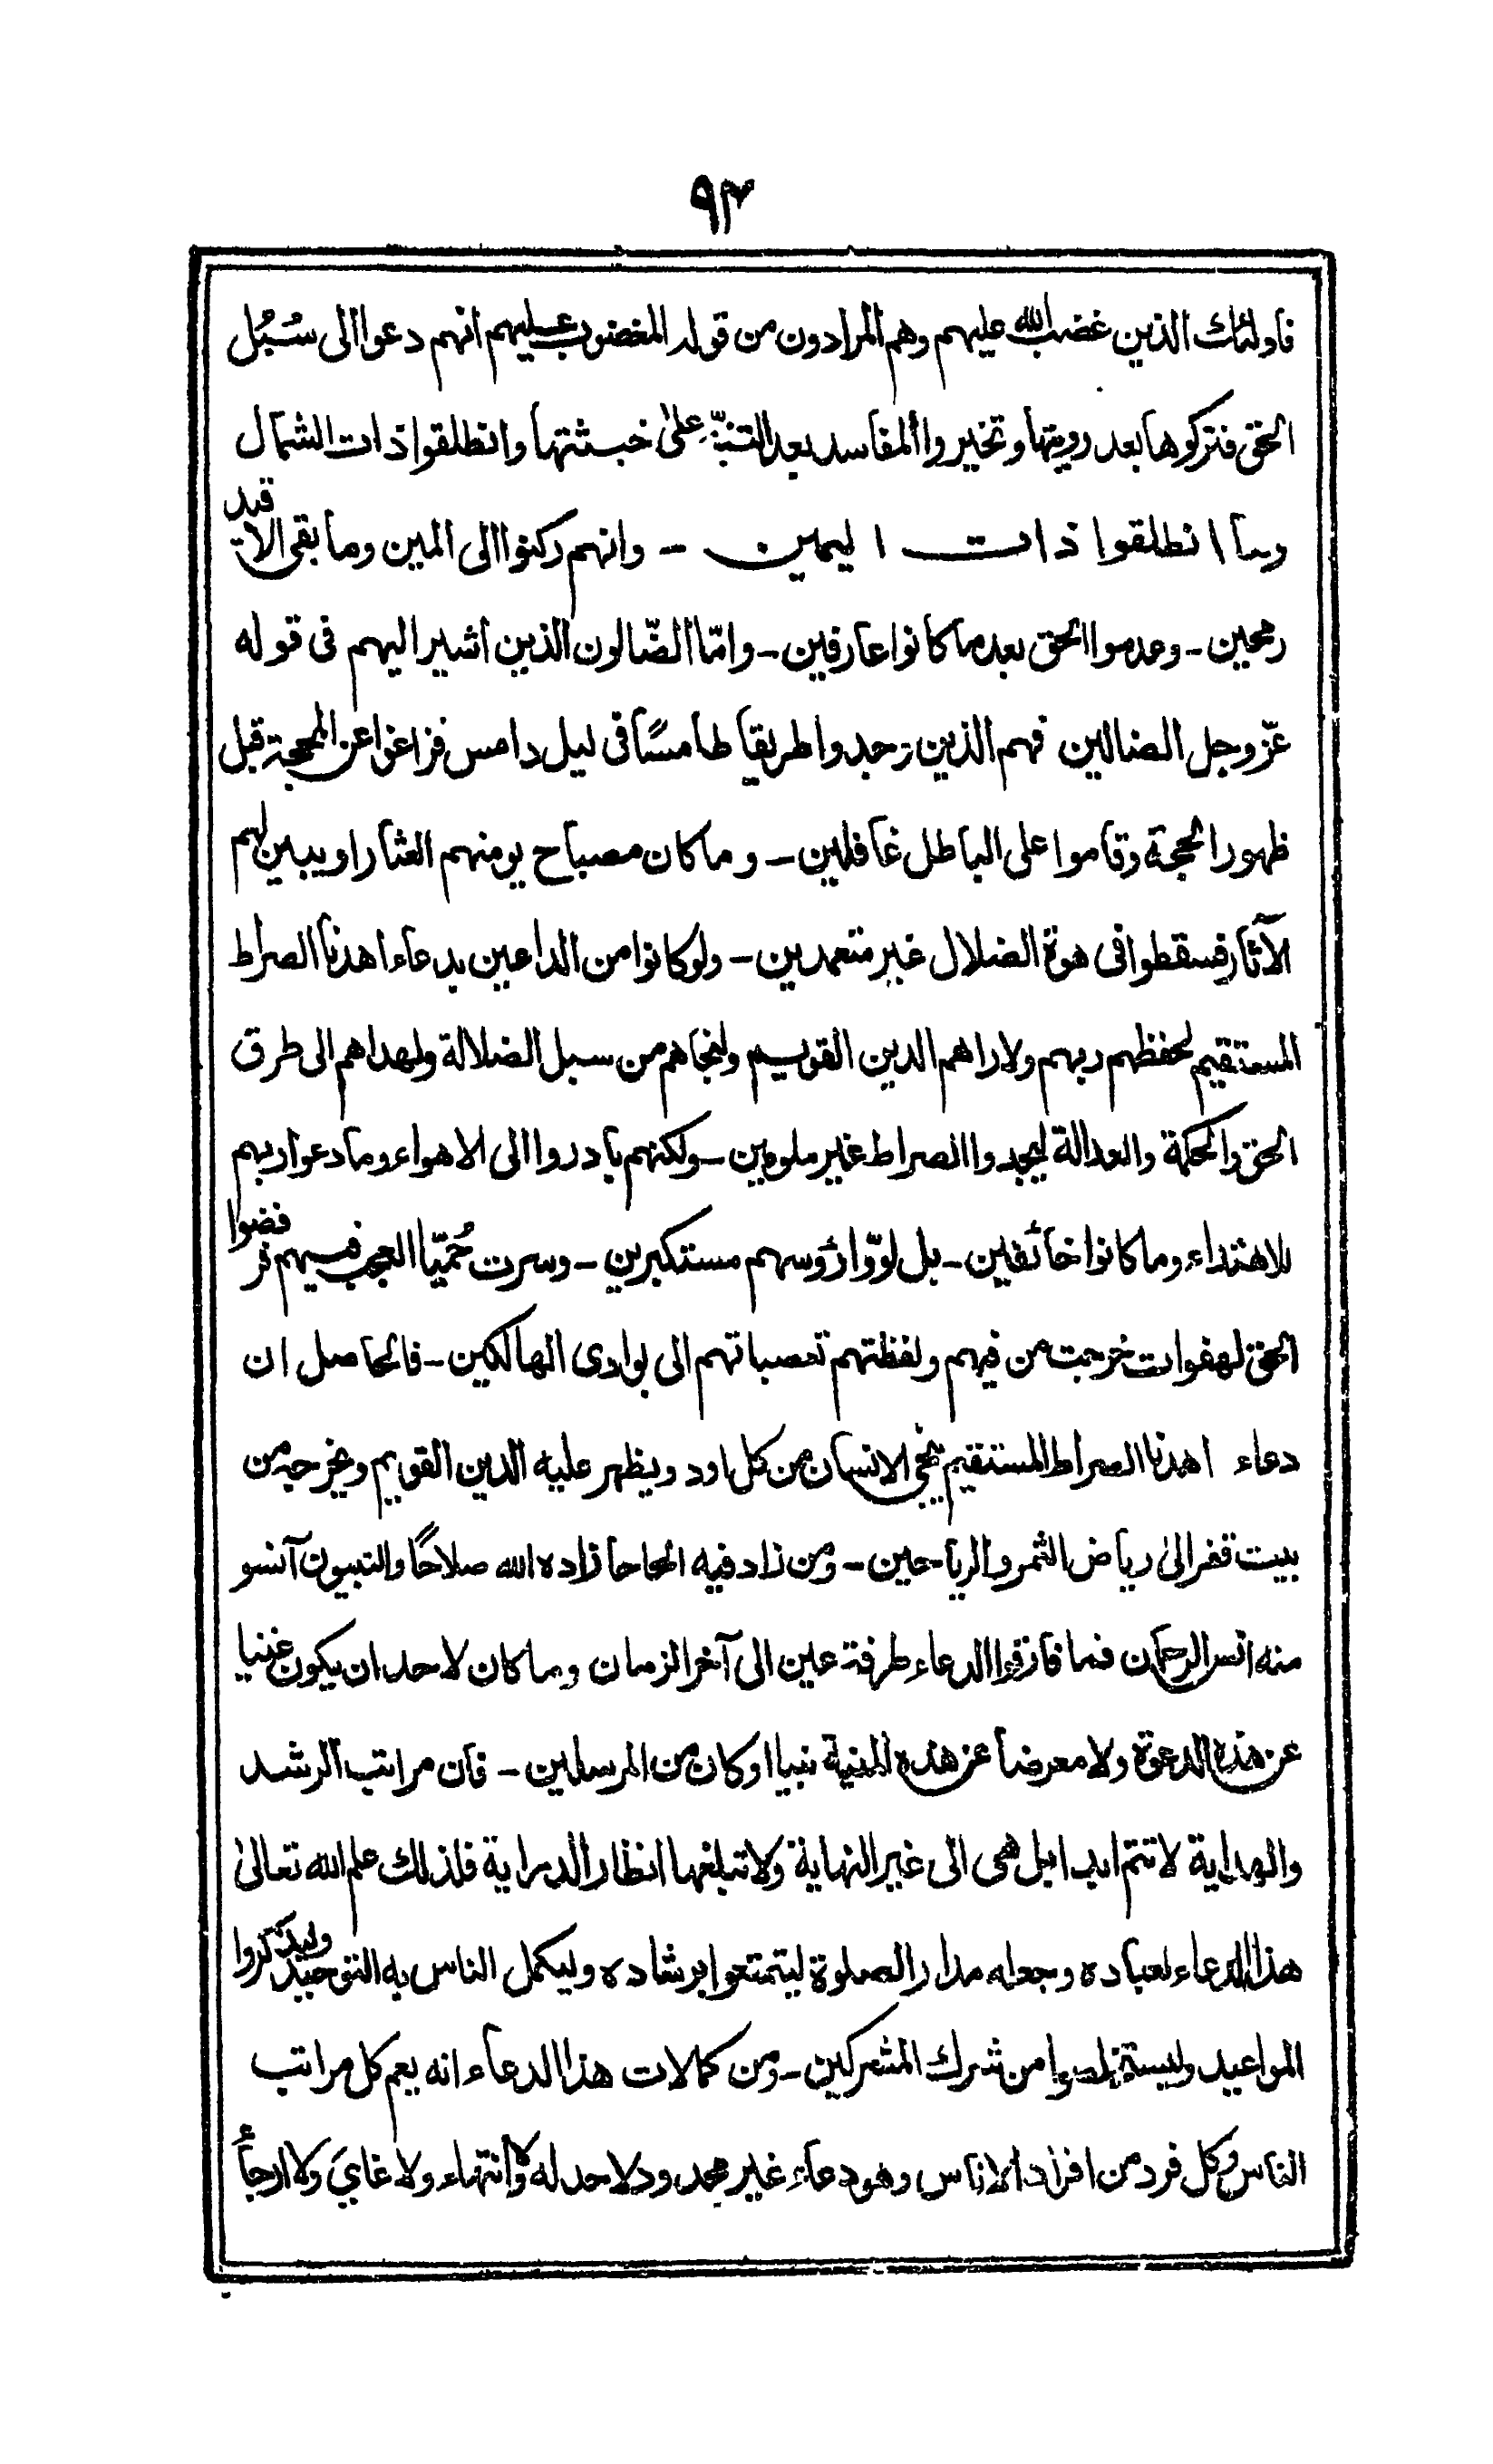 ٩٣
فاولئك الذين غضب الله عليهم وهم المرادون من قوله المغضوب عليهم انهم دعوا الى سُبُل
الحق فتركوها بعد رويتها وتخيروا المفاسد بعد التنبّهِ على خبثتها وانطلقوا ذات الشمال
وما انطلقوا ذات اليمين - وانهم ركنوا الى المين وما بقى الا قيد
رمحين - وعدموا الحق بعد ما كانوا عارفين - وامّا الضّالون الذين اشير اليهم فى قوله
عزّ وجل الضالين فهم الذين وجدوا طريقا طامسًا فى ليل دامس فزاغوا عن المحجة قبل
ظهور الحجة وقاموا على الباطل غافلين - وما كان مصباح يومنهم العثار او يبين لهم
الآثار فسقطوا فى هوة الضلال غير متعمدين - ولو كانوا من الداعين بدعاء اهدنا الصراط
المستقيم لحفظهم ربهم ولاراهم الدين القويم ولنجاهم من سبل الضلالة ولهداهم الى طرق
الحق والحكمة والعدالة ليجدوا الصراط غير ملومين - ولكنهم بادروا الى الاهواء وما دعوا ربهم
للاهتداء وما كانوا خائفين - بل لوّوا رؤوسهم مستكبرين - وسرت حُميّا العجب فيهم فرفضوا
الحق لهفوات خرجت من فيهم ولفظتهم تعصباتهم الى بوادى الهالكين - فالحاصل ان
دعاء اهدنا الصراط المستقيم ينجى الانسان من كل اود ويظهر عليه الدين القويم ويخرجه من
بيت قفر الى رياض الثمر والرياحين - ومن زاد فيه الحاحا زاده الله صلاحًا والنبيون آنسوا
منه انس الرحمان فما فارقوا الدعاء طرفة عين الى آخر الزمان وما كان لاحد ان يكون غنيا
عن هذه الدعوة ولا معرضا عن هذه المنية نبيا او كان من المرسلين - فان مراتب الرشد
والهداية لا تتم ابدا بل هى الى غير النهاية ولا تبلغها انظار الدراية فلذلك علم الله تعالىٰ
هذا الدعاء لعباده وجعله مدار الصلوة ليتمتعوا برشاده وليكمل الناس به التوحيد وليذكروا
المواعيد وليستخلصوا من شرك المشركين - ومن كمالات هذا الدعاء انه يعم كل مراتب
الناس وكل فرد من افراد الاناس وهو دعاء غير محدود لا حد له ولا انتهاء ولا غاى ولا ارجاء